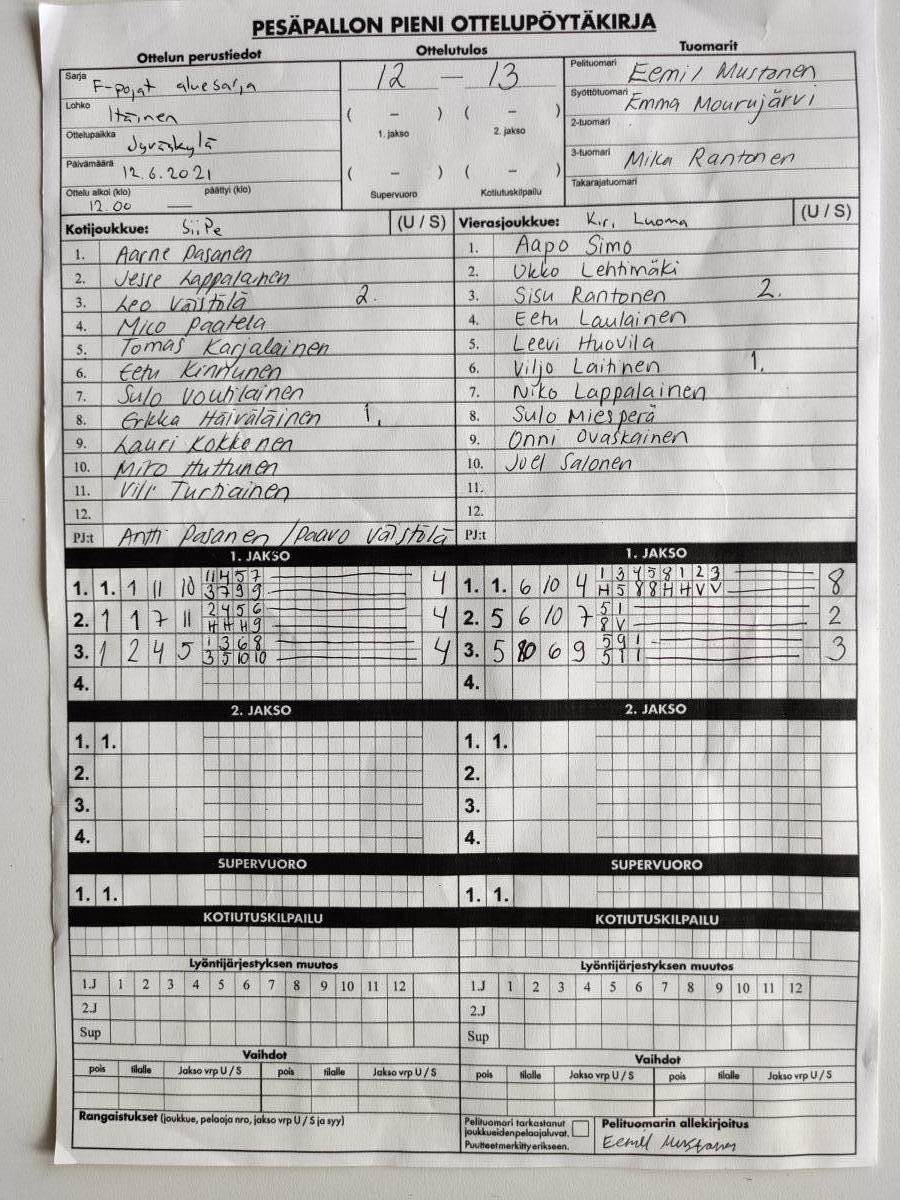 PESÄPALLON PIENI OTTELUPÖYTÄKIRJA
Ottelun perustiedot
Ottelutulos
Tuomarit
Sarja F-pojat aluesarja
Lohko Itäinen
Ottelupaikka Jyväskylä
Päivämäärä 12.6.2021
Ottelu alkoi (klo) päättyi (klo)
12.00 —
12 — 13
( – ) ( – )
1. jakso 2. jakso
( – ) ( – )
Supervuoro Kotiutuskilpailu
Pelituomari Eemil Mustonen
Syöttötuomari Emma Mourujärvi
2-tuomari
3-tuomari Mika Rantonen
Takarajatuomari
Kotijoukkue: SiiPe (U / S)
1. Aarne Pasanen
2. Jesse Lappalainen
3. Leo Väistölä 2.
4. Mico Paatela
5. Tomas Karjalainen
6. Eetu Kinnunen
7. Sulo Voutilainen
8. Erkka Häiväläinen 1.
9. Lauri Kokkonen
10. Miro Huttunen
11. Vili Turtiainen
12.
PJ:t Antti Pasanen / Paavo Väistölä
Vierasjoukkue: Kiri, Luoma (U / S)
1. Aapo Simo
2. Ukko Lehtimäki
3. Sisu Rantonen 2.
4. Eetu Laulainen
5. Leevi Huovila
6. Viljo Laitinen 1.
7. Niko Lappalainen
8. Sulo Miesperä
9. Onni Ovaskainen
10. Joel Salonen
11.
12.
PJ:t
1. JAKSO
1. 1. 1 11 10 11 4 5 7 4
3 7 9 9
2. 1 1 7 11 2 4 5 6 4
H H H 9
3. 1 2 4 5 1 3 6 8 4
3 5 10 10
4.
1. JAKSO
1. 1. 6 10 4 1 3 4 5 8 1 2 3 8
H 5 8 8 H H V V
2. 5 6 10 7 5 1 2
8 V
3. 5 6 9 5 9 1 3
5 1 1
4.
2. JAKSO
1. 1.
2.
3.
4.
2. JAKSO
1. 1.
2.
3.
4.
SUPERVUORO
1. 1.
SUPERVUORO
1. 1.
KOTIUTUSKILPAILU
KOTIUTUSKILPAILU
Lyöntijärjestyksen muutos
1.J 1 2 3 4 5 6 7 8 9 10 11 12
2.J
Sup
Lyöntijärjestyksen muutos
1.J 1 2 3 4 5 6 7 8 9 10 11 12
2.J
Sup
Vaihdot
pois tilalle Jakso vrp U / S pois tilalle Jakso vrp U / S
Vaihdot
pois tilalle Jakso vrp U / S pois tilalle Jakso vrp U / S
Rangaistukset (joukkue, pelaaja nro, jakso vrp U / S ja syy)
Pelituomari tarkastanut
joukkueidenpelaajaluvat.
Puutteet merkitty erikseen.
Pelituomarin allekirjoitus
Eemil Mustonen